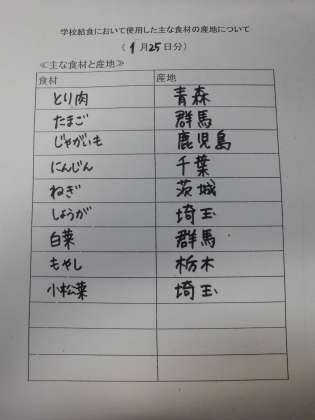 学校給食において使用した主な食材の産地について
(1月25日分)
≪主な食材と産地≫
食材 産地
とり肉 青森
たまご 群馬
じゃがいも 鹿児島
にんじん 千葉
ねぎ 茨城
しょうが 埼玉
白菜 群馬
もやし 栃木
小松菜 埼玉